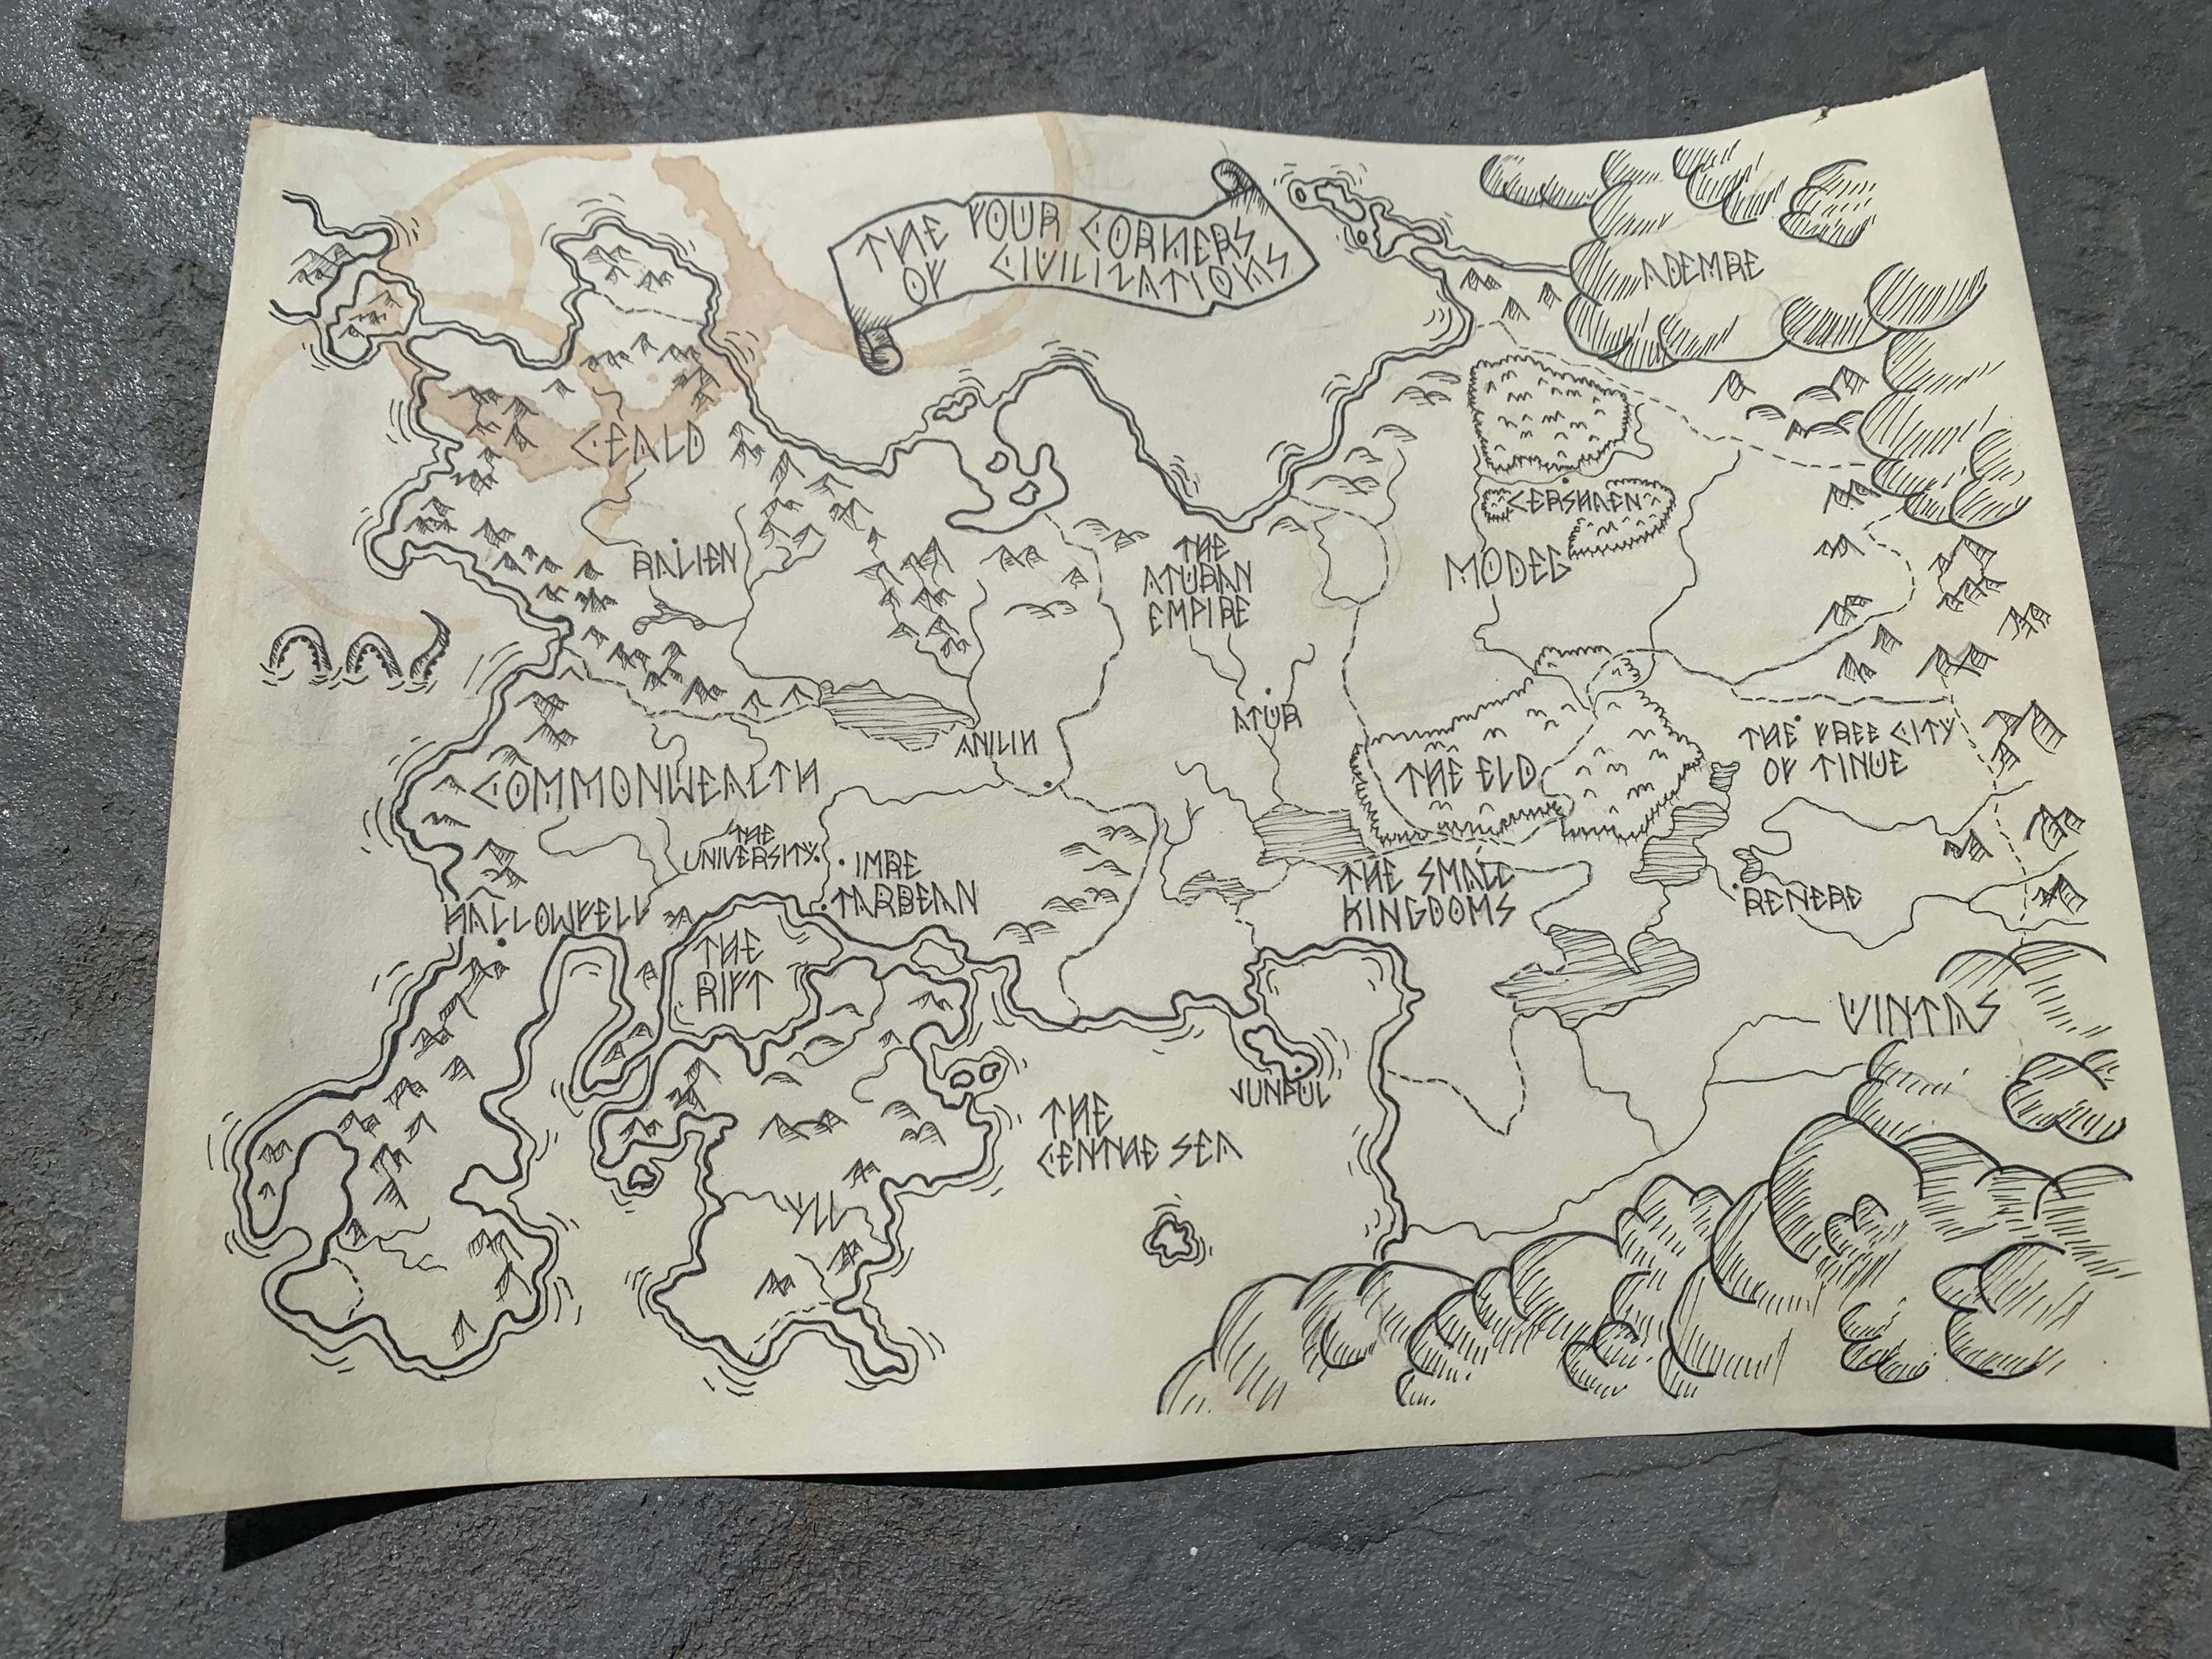 THE FOUR CORNERS
OF CIVILIZATIONS
ADEMRE
CEALD
CERSHAEN
RALIEN
THE
ATURAN
EMPIRE
MODEG
ATUR
ANILIN
THE FREE CITY
OF TINUE
THE ELD
COMMONWEALTH
THE
UNIVERSITY
IMRE
TARBEAN
THE SMALL
KINGDOMS
RENERE
HALLOWFELL
THE
RIFT
VINTAS
JUNPUI
THE
CENTHE SEA
YLL